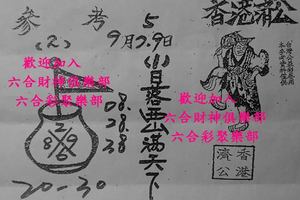 參考 5
香港濟公
(2)
9月29日
(1)日落西山滿天下
歡迎加入
六合財神俱樂部
六合彩聚樂部
歡迎加入
六合財神俱樂部
六合彩聚樂部
28.
38
20-30
香港
濟公